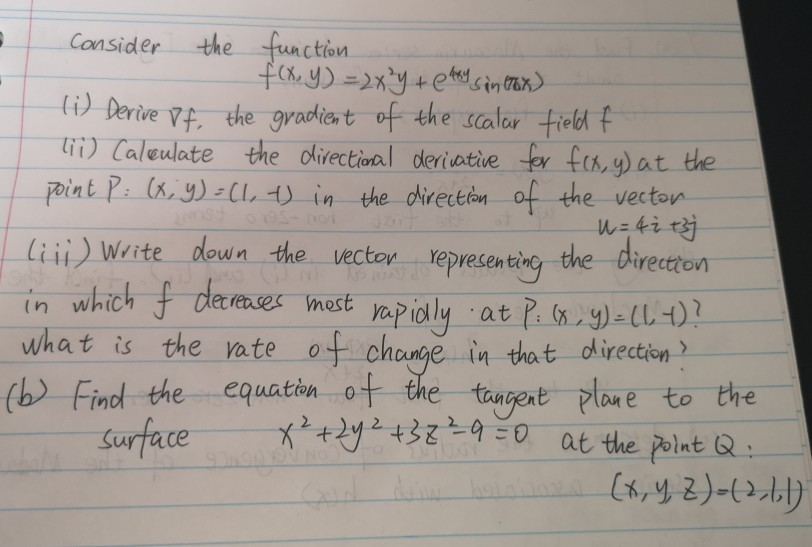 Consider the function
f(x, y) = 2x²y + e^{4xy} sin(πx)
(i) Derive ∇f, the gradient of the scalar field f
(ii) Calculate the directional derivative for f(x, y) at the
point P: (x, y) = (1, -1) in the direction of the vector
u = 4i + 3j
(iii) Write down the vector representing the direction
in which f decreases most rapidly at P: (x, y) = (1, -1)?
What is the rate of change in that direction?
(b) Find the equation of the tangent plane to the
surface x² + 2y² + 3z² - 9 = 0 at the point Q:
(x, y, z) = (2, 1, 1)